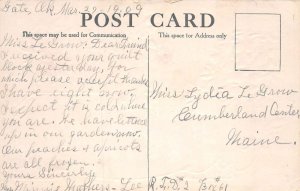 Gate, Ok, Mar. 29-1909
POST CARD
This space may be used for Communication.
This space for Address only
Miss Le Grow. Dear friend
I received your quilt
block yesterday, for
which please accept thanks
I have eight now,
I expect it is cold where
you are. We have lettuce
up in our garden now.
Our peaches & apricots
are all frozen.
Yours Sincerely
Minnie
Miss Lydia Le Grow
Cumberland Center
Maine.
R.F.D. #2 Box 61